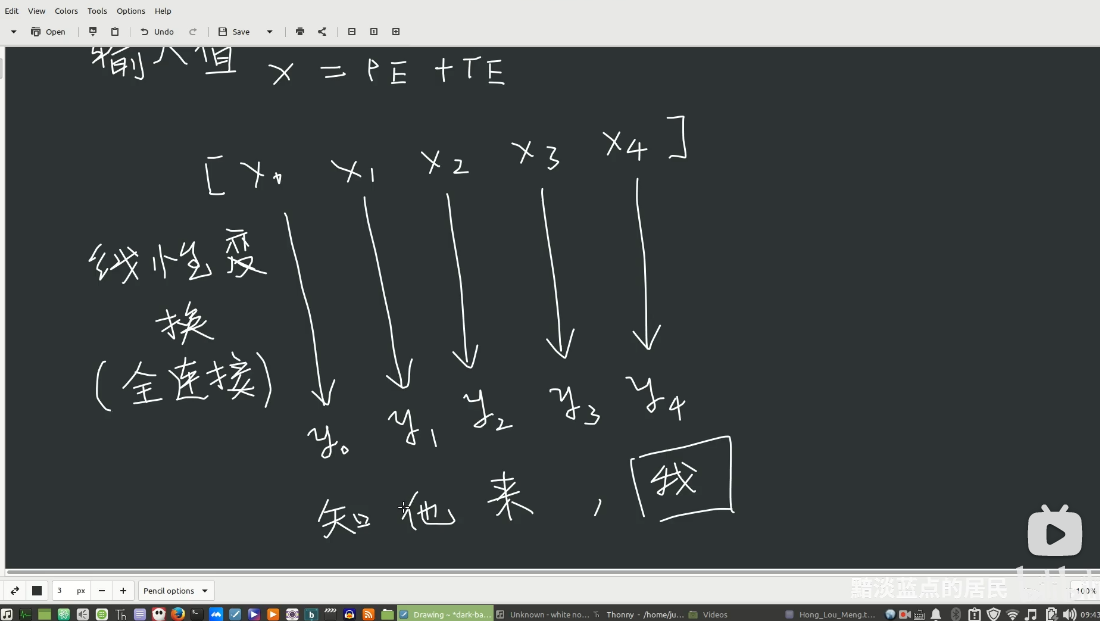 Edit View Colors Tools Options Help
Open Undo Save
输入值 x = PE + TE
[ x₀ x₁ x₂ x₃ x₄ ]
线性变
换
(全连接)
y₀ y₁ y₂ y₃ y₄
知他来,我
3 px − + Pencil options 100%
黯淡蓝点的居民
Drawing ~ *dark-ba... Unknown - white no... Thonny - /home/ju... Videos Hong_Lou_Meng.t... 09:43